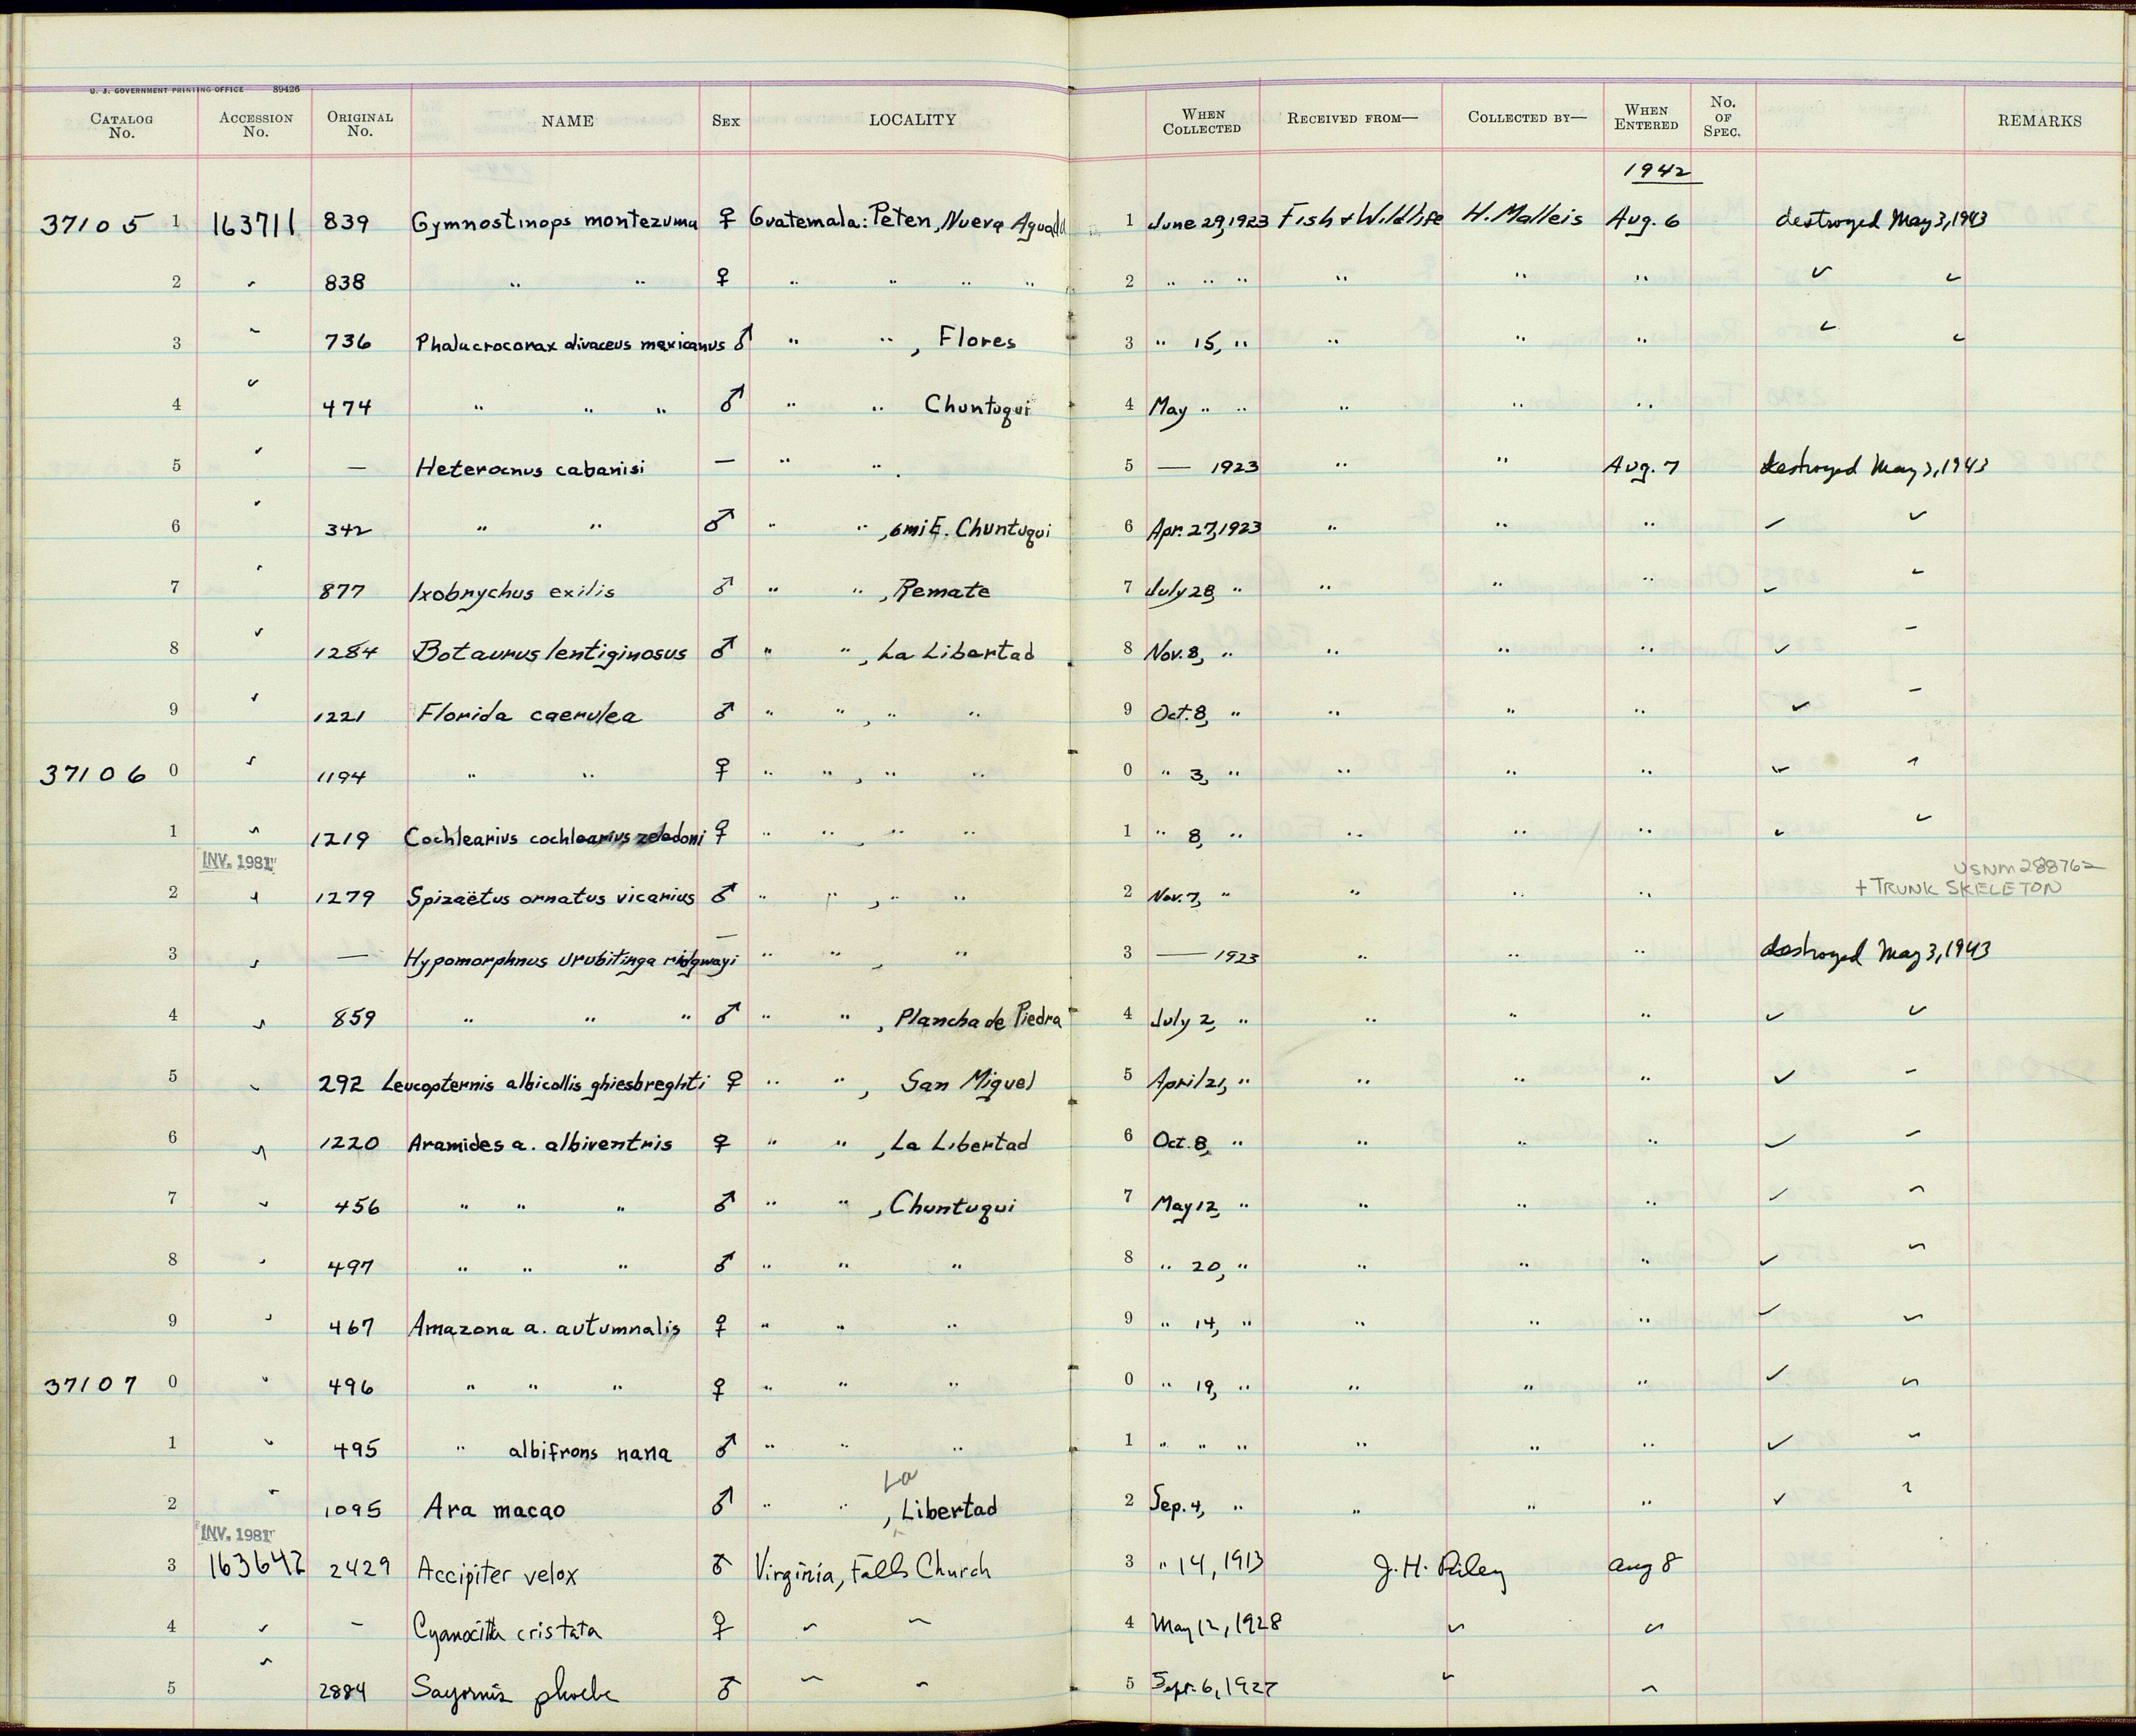 U. S. GOVERNMENT PRINTING OFFICE 89426
CATALOG No. ACCESSION No. ORIGINAL No. NAME SEX LOCALITY WHEN COLLECTED RECEIVED FROM— COLLECTED BY— WHEN ENTERED No. OF SPEC. REMARKS
1942
37105 1 163711 839 Gymnostinops montezuma ♀ Guatemala: Peten, Nueva Aguada 1 June 29, 1923 Fish & Wildlife H. Malleis Aug. 6 destroyed May 3, 1943
2 " 838 " " ♀ " " " " 2 " " " " " " " "
3 " 736 Phalacrocorax olivaceus mexicanus ♂ " ", Flores 3 " 15, " " " " " "
4 " 474 " " " ♂ " " Chuntuqui 4 May " " " " "
5 " — Heterocnus cabanisi — " ". 5 — 1923 " " Aug. 7 destroyed May 3, 1943
6 " 342 " " ♂ " ", 6 mi E. Chuntuqui 6 Apr. 27, 1923 " " " " "
7 " 877 Ixobrychus exilis ♂ " ", Remate 7 July 28, " " " " " "
8 " 1284 Botaurus lentiginosus ♂ " ", La Libertad 8 Nov. 8, " " " " " "
9 " 1221 Florida caerulea ♂ " ", " " 9 Oct. 8, " " " " " "
37106 0 " 1194 " " ♀ " ", " " 0 " 3, " " " " " "
1 " 1219 Cochlearius cochlearius zeledoni ♀ " ", " " 1 " 8, " " " " " "
INV. 1981 USNM 288762
2 " 1279 Spizaëtus ornatus vicarius ♂ " ", " " 2 Nov. 7, " " " " + TRUNK SKELETON
3 " — Hypomorphnus urubitinga ridgwayi — " ", " 3 — 1923 " " " destroyed May 3, 1943
4 " 859 " " " ♂ " ", Plancha de Piedra 4 July 2, " " " " " "
5 " 292 Leucopternis albicollis ghiesbreghti ♀ " ", San Miguel 5 April 21, " " " " " "
6 " 1220 Aramides a. albiventris ♀ " ", La Libertad 6 Oct. 8, " " " " " "
7 " 456 " " " ♂ " ", Chuntuqui 7 May 12, " " " " " "
8 " 497 " " " ♂ " " " 8 " 20, " " " " " "
9 " 467 Amazona a. autumnalis ♀ " " " 9 " 14, " " " " " "
37107 0 " 496 " " " ♀ " " " 0 " 19, " " " " " "
1 " 495 " albifrons nana ♂ " " " 1 " " " " " " " "
2 " 1095 Ara macao ♂ " ", La Libertad 2 Sep. 4, " " " " " "
INV. 1981
3 163642 2429 Accipiter velox ♂ Virginia, Falls Church 3 " 14, 1913 J. H. Riley Aug 8
4 " — Cyanocitta cristata ♀ " " 4 May 12, 1928 " "
5 " 2884 Sayornis phoebe ♂ " " 5 Sept. 6, 1927 " "